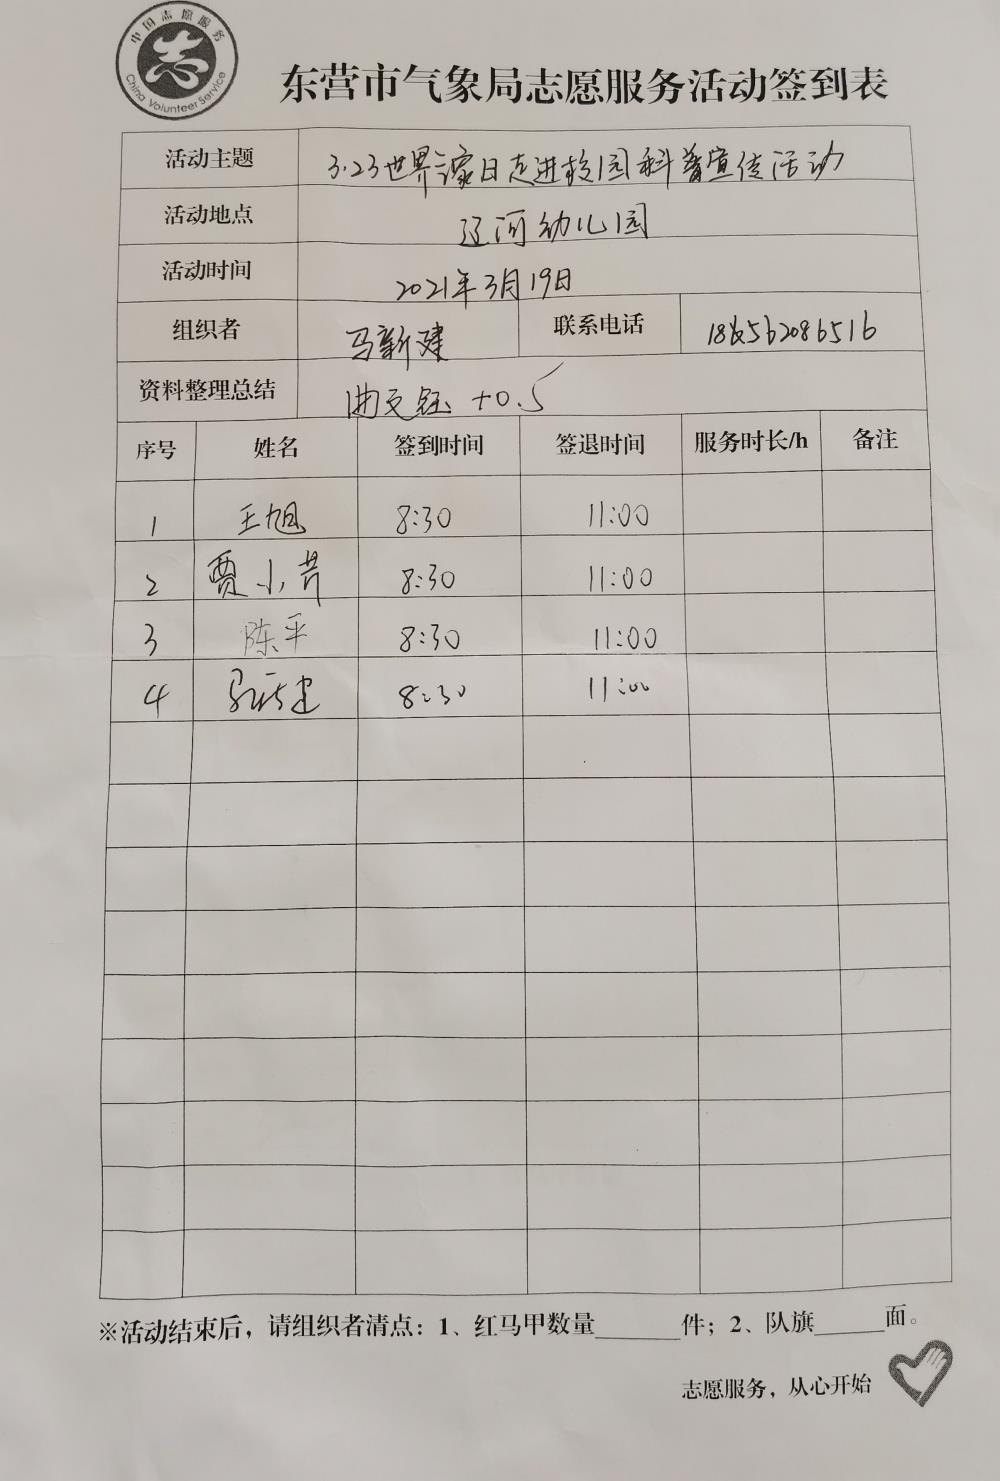 中国志愿服务
志
China Volunteer Service
东营市气象局志愿服务活动签到表
活动主题 3.23世界气象日走进校园科普宣传活动
活动地点 辽河幼儿园
活动时间 2021年3月19日
组织者 马新建 联系电话
资料整理总结 曲文钰 +0.5
序号 姓名 签到时间 签退时间 服务时长/h 备注
1 王旭 8:30 11:00
2 贾小芳 8:30 11:00
3 陈平 8:30 11:00
4 马新建 8:30 11:00
※活动结束后，请组织者清点：1、红马甲数量______件；2、队旗_____面。
志愿服务，从心开始